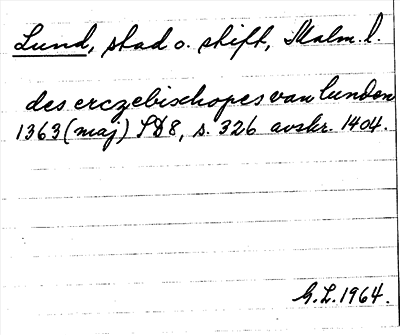 Lund, stad o. stift, Malm. l.
des erczebischopes van lunden
1363 (maj) SD 8, s. 326 avskr. 1404.
G.L. 1964.